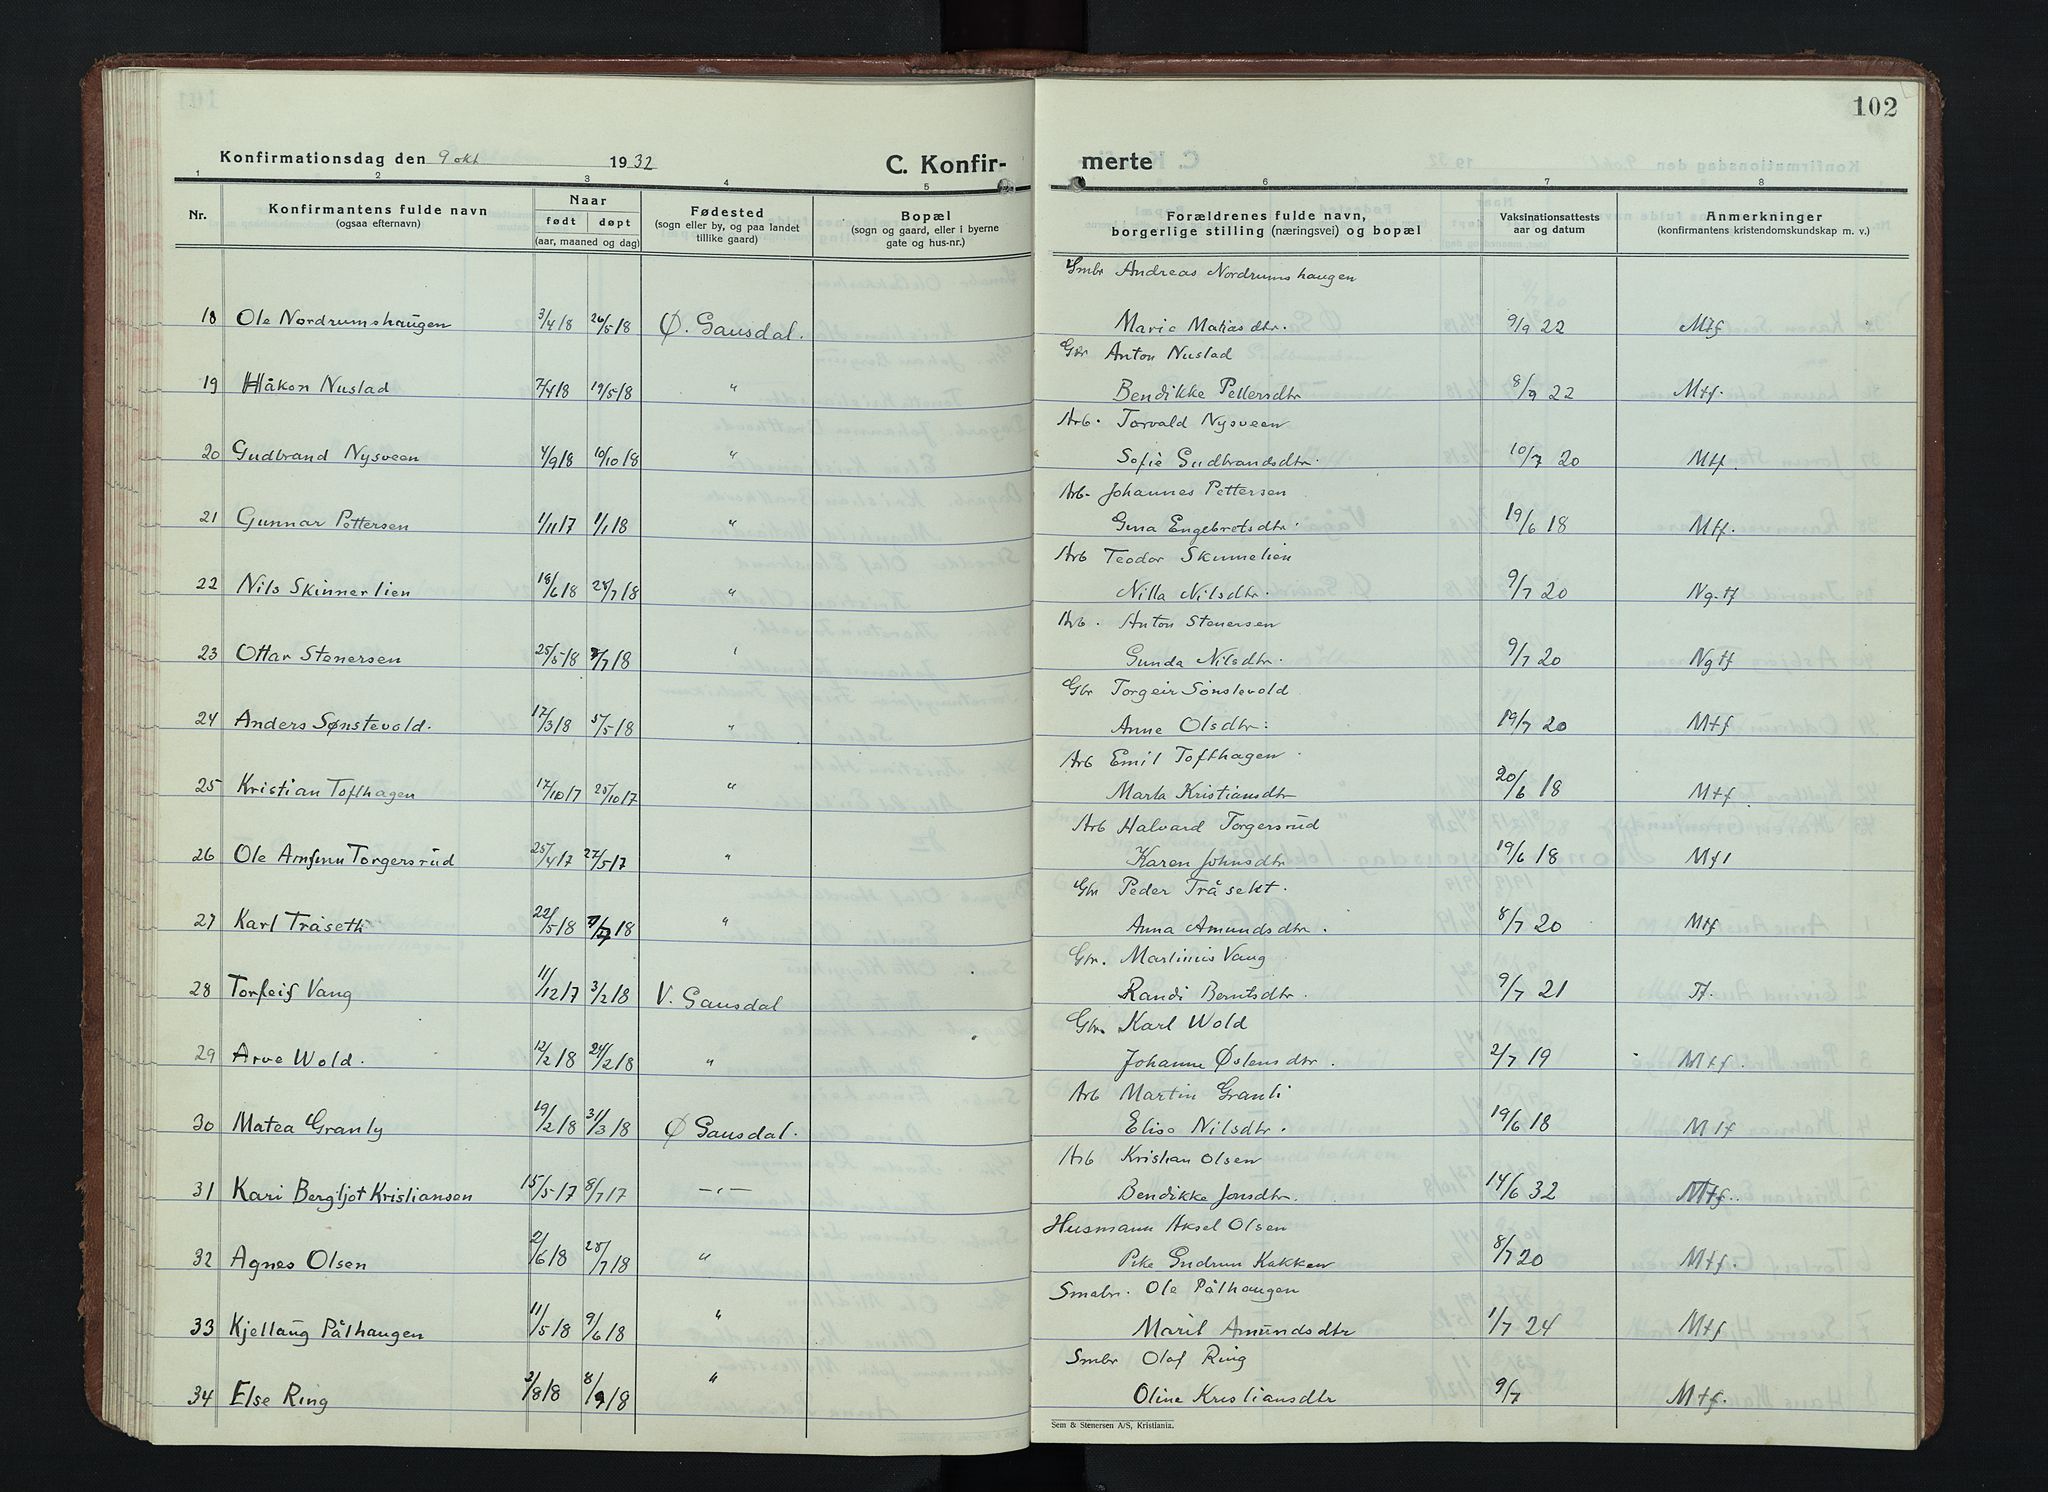 102
Konfirmationsdag den 9 okt 1932 C. Konfir- merte
1 2 3 4 5 6 7 8
Nr. Konfirmantens fulde navn (ogsaa efternavn) Naar født døpt (aar, maaned og dag) Fødested (sogn eller by, og paa landet tillike gaard) Bopæl (sogn og gaard, eller i byerne gate og hus-nr.) Forældrenes fulde navn, borgerlige stilling (næringsvei) og bopæl Vaksinationsattests aar og datum Anmerkninger (konfirmantens kristendomskundskap m. v.)
Smbr Andreas Nordrumshaugen
18 Ole Nordrumshaugen 3/4 18 26/5 18 Ø. Gausdal. Marie Matiasdtr. 9/9 22 Mtf
Gbr Anton Nustad
19 Håkon Nustad 7/4 18 19/5 18 " Bendikke Pettersdtr 8/9 22 Mtf.
Arb. Torvald Nysveen
20 Gudbrand Nysveen 4/9 18 10/10 18 " Sofie Gudbrandsdtr. 10/7 20 Mtf.
Arb. Johannes Pettersen
21 Gunnar Pettersen 1/11 17 1/1 18 " Gina Engebretsdtr. 19/6 18 Mtf.
Arb Teodor Skinnerlien
22 Nils Skinnerlien 18/6 18 28/7 18 " Nilla Nilsdtr. 9/7 20 Ng.tf
Arb. Anton Stenersen
23 Ottar Stenersen 25/5 18 /7 18 " Gunda Nilsdtr. 9/7 20 Ng tf
Gbr Torgeir Sønstevold
24 Anders Sønstevold. 17/3 18 5/5 18 " Anne Olsdtr. 19/7 20 Mtf
Arb Emil Tofthagen
25 Kristian Tofthagen 17/10 17 25/10 17 " Marta Kristiansdtr 20/6 18 Mtf.
Arb Halvard Torgersrud
26 Ole Arnfinn Torgersrud 25/4 17 27/5 17 " Karen Johnsdtr 19/6 18 Mtf
Gbr Peder Tråseth.
27 Karl Tråseth 22/5 18 /7 18 " Anna Amundsdtr. 8/7 20 Mtf
Gbr. Martinius Vang
28 Torleif Vang 11/12 17 3/2 18 V. Gausdal Randi Berntsdtr. 9/7 21 Tf.
Gbr. Karl Wold
29 Arve Wold. 12/2 18 24/2 18 " Johanne Østensdtr. 2/7 19 Mtf.
Arb Martin Granli
30 Matea Granly 19/2 18 31/3 18 Ø Gausdal. Elise Nilsdtr. 19/6 18 Mtf
Arb Kristian Olsen
31 Kari Bergljot Kristiansen 15/5 17 8/7 17 —"— Bendikke Jonsdtr. 14/6 32 Mtf.
Husmann Aksel Olsen
32 Agnes Olsen 2/6 18 28/7 18 " Pike Gudrun Kakken 8/7 20 Mtf.
Smabr. Ole Pålhaugen
33 Kjellaug Pålhaugen 11/5 18 9/6 18 " Marit Amundsdtr 1/7 24 Mtf
Smbr Olaf Ring
34 Else Ring 2/8 18 8/9 18 " Oline Kristiansdtr 9/7 Mtf.
Sem & Stenersen A/S, Kristiania.